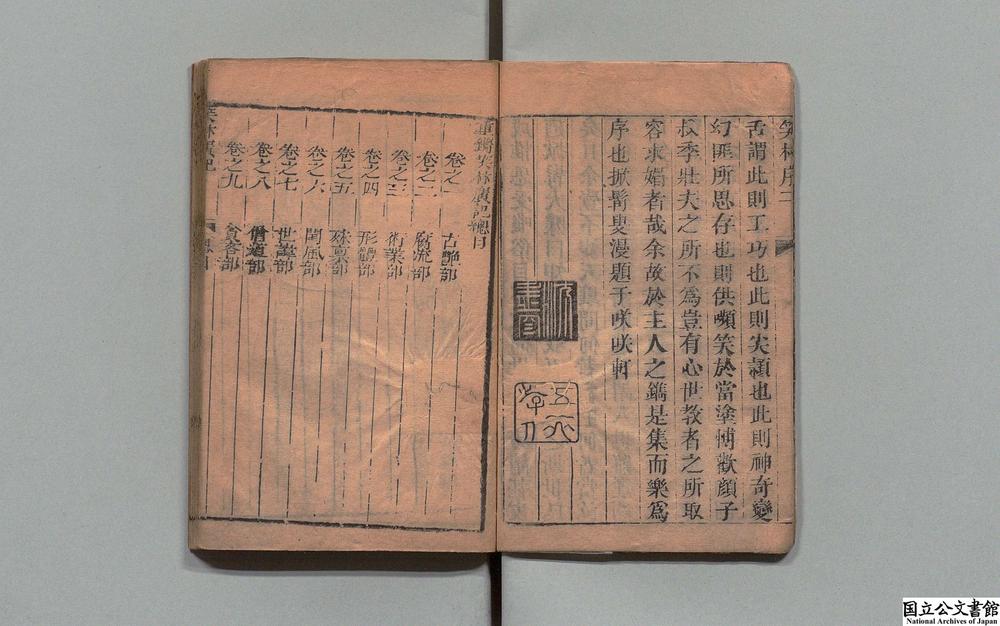 笑林序二
舌謂此則工巧也此則尖頴也此則神奇變
幻匪所思存也則供嚬笑於當塗博歡顔子
叔季壯夫之所不為豈有心世教者之所取
容求媚者哉余故於主人之鐫是集而樂為
序也掀髯叟漫題于咲咲軒
重鐫笑林廣記總目
卷之一 古艷部
卷之二 腐流部
卷之三 術業部
卷之四 形體部
卷之五 殊稟部
卷之六 閨風部
卷之七 世諱部
卷之八 僧道部
卷之九 貪吝部
笑林廣記 總目
国立公文書館
National Archives of Japan